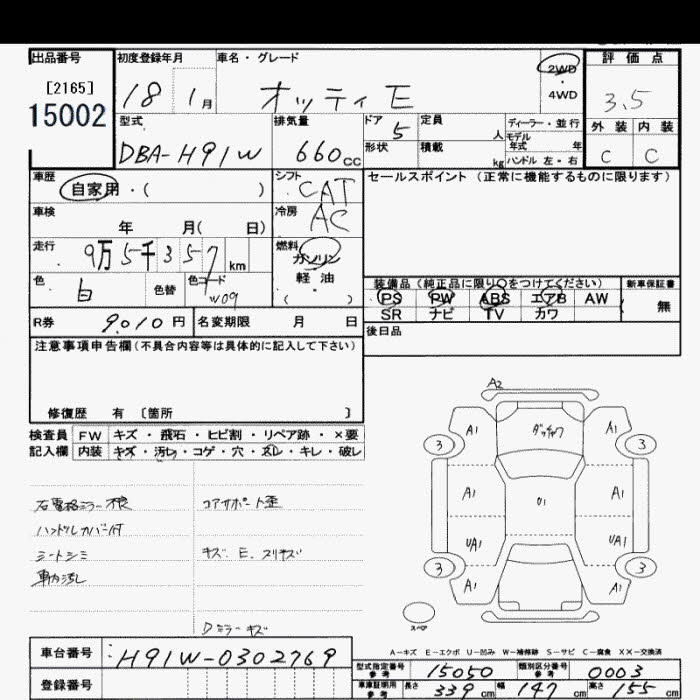 出品番号 初度登録年月 車名・グレード 2WD 評価点
[2165] ・
15002 18 1月 オッティ E 4WD 3.5
型式 排気量 ドア 5 定員 人 ディーラー・並行 外装 内装
モデル年式 年
DBA-H91W 660cc 形状 積載 kg ハンドル 左・右 C C
車歴 シフト セールスポイント (正常に機能するものに限ります)
自家用・( ) CAT
車検 冷房 AC
年 月( 日)
走行 9万5千357km 燃料 ガソリン
軽油
色 白 色替 色コード W09 ( )
装備品 (純正品に限り○をつけてください) 新車保証書
PS PW ABS エアB AW 無
SR ナビ TV カワ
R券 9,010円 名変期限 月 日 後日品
注意事項申告欄(不具合内容等は具体的に記入して下さい)
修復歴 有 〔箇所 〕
検査員 FW キズ・飛石・ヒビ割・リペア跡・×要
記入欄 内装 キズ・汚れ・コゲ・穴・スレ・キレ・破レ
A2
A1 A1
3 3
A1 U1 A1
UA1 UA1
3 3
A1 A1
スペア
コアサポート歪
ハンドルカバー付
シートシミ キズ、E、スリキズ
Dミラーキズ
A-キズ E-エクボ U-凹み W-補修跡 S-サビ C-腐食 XX-交換済
車台番号 H91W-0302769
型式指定番号 参考 15050 類別区分番号 参考 0003
登録番号
車庫証明用 参考 長さ 339cm 幅 147cm 高さ 155cm